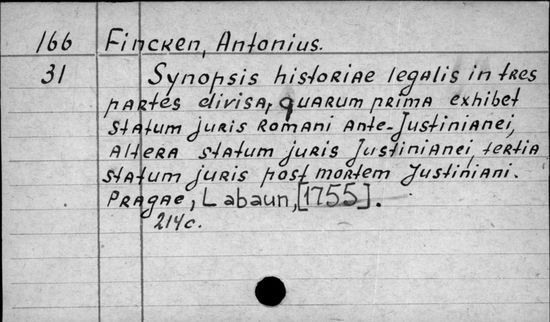 166 Fincken, Antonius.
31 Synopsis historiae legalis in tres
partes divisa, quarum prima exhibet
statum juris Romani Ante-Justinianei,
altera statum juris Justinianei, tertia
statum juris post mortem Justiniani.
Pragae, Labaun, [1755].
214c.